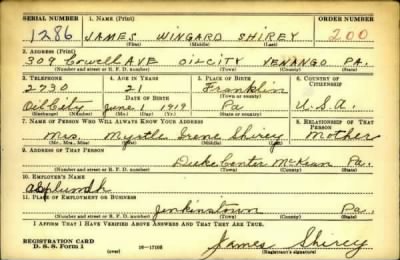 SERIAL NUMBER 1. NAME (Print) ORDER NUMBER
1286 JAMES WINGARD SHIREY 200
(First) (Middle) (Last)
2. ADDRESS (Print)
309 Cowell AVE OIL CITY VENANGO PA.
(Number and street or R. F. D. number) (Town) (County) (State)
3. TELEPHONE 4. AGE IN YEARS 5. PLACE OF BIRTH 6. COUNTRY OF CITIZENSHIP
2730 21 Franklin
DATE OF BIRTH (Town or county)
Oil City June 1 1919 Pa U.S.A.
(Exchange) (Number) (Mo.) (Day) (Yr.) (State or country)
7. NAME OF PERSON WHO WILL ALWAYS KNOW YOUR ADDRESS 8. RELATIONSHIP OF THAT PERSON
Mrs. Myrtle Irene Shirey Mother
(Mr., Mrs., Miss) (First) (Middle) (Last)
9. ADDRESS OF THAT PERSON
Duke Center McKean Pa.
(Number and street or R. F. D. number) (Town) (County) (State)
10. EMPLOYER'S NAME
11. PLACE OF EMPLOYMENT OR BUSINESS
Jenkinstown Pa.
(Number and street or R. F. D. number) (Town) (County) (State)
I AFFIRM THAT I HAVE VERIFIED ABOVE ANSWERS AND THAT THEY ARE TRUE.
REGISTRATION CARD
D. S. S. Form 1 (over) 16—17105 James Shirey
(Registrant's signature)